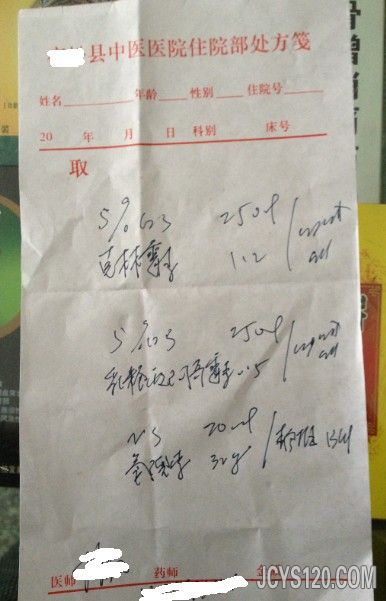 县中医医院住院部处方笺
姓名 年龄 性别 住院号
20 年 月 日 科别 床号
取
5% GS 250ml
克林霉素 1.2
5% GS 250ml
乳糖酸阿奇霉素 0.5
NS 20ml
静推 Bid
医师 药师
JCYS120.COM